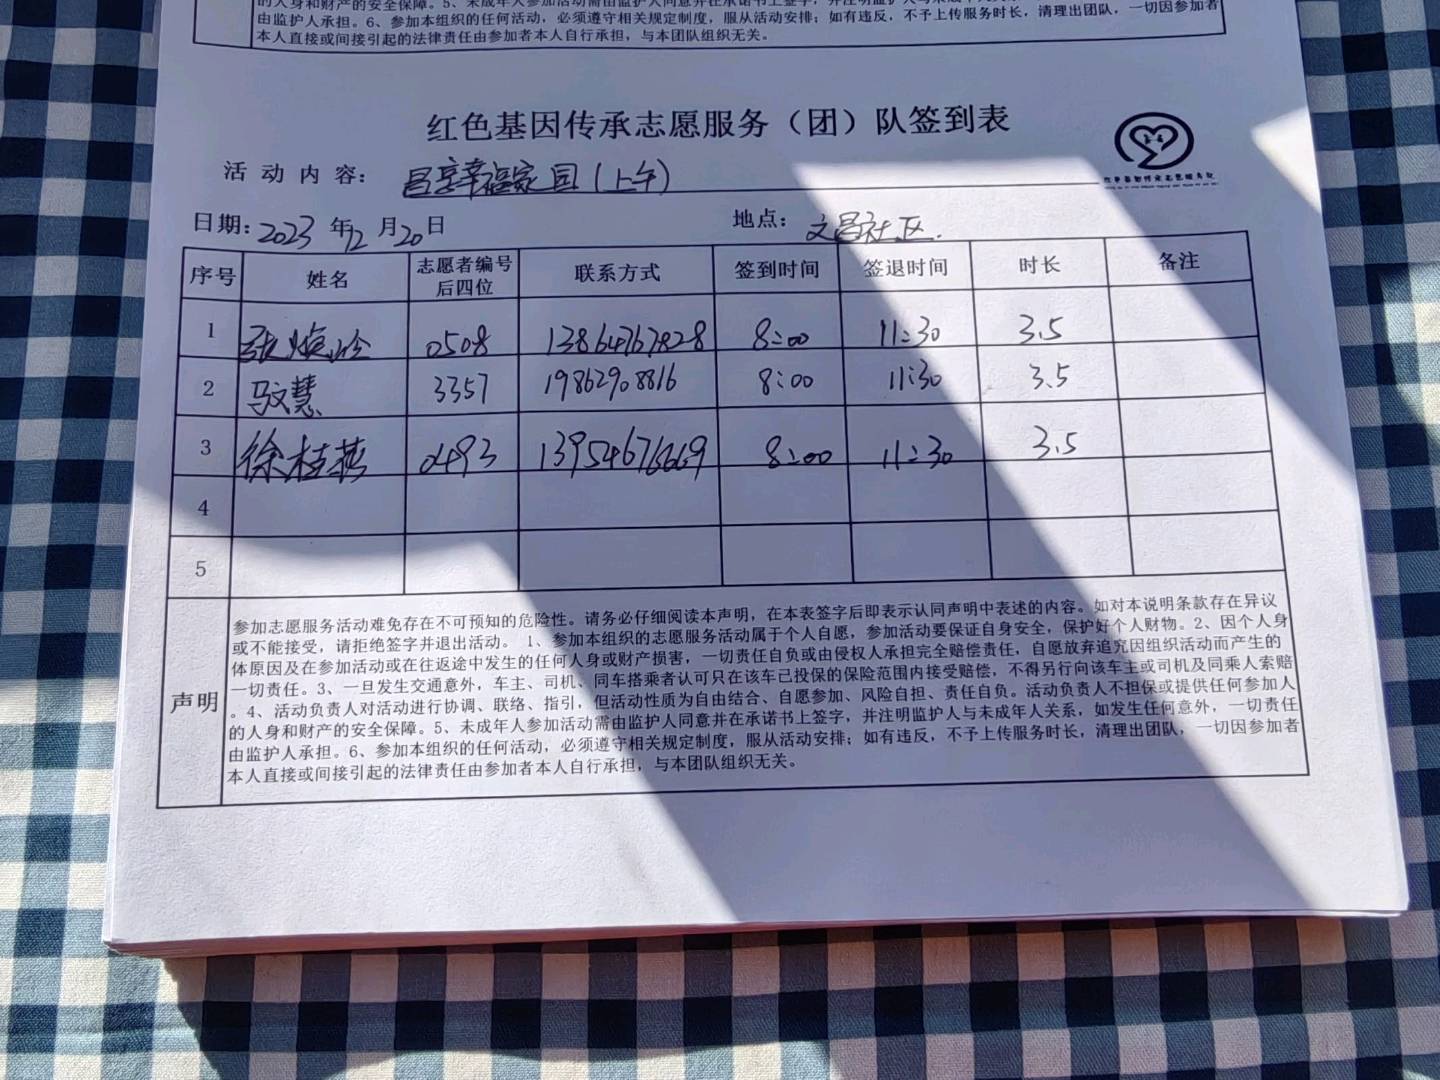 的人身和财产的安全保障。5、未成年人参加活动需由监护人同意并在承诺书上签字，并注明监护人与未成年人关系
由监护人承担。6、参加本组织的任何活动，必须遵守相关规定制度，服从活动安排；如有违反，不予上传服务时长，清理出团队，一切因参加者
本人直接或间接引起的法律责任由参加者本人自行承担，与本团队组织无关。
红色基因传承志愿服务（团）队签到表
活动内容：昌享幸福家园（上午）
日期：2023年12月20日 地点：文昌社区.
序号 姓名 志愿者编号后四位 联系方式 签到时间 签退时间 时长 备注
1 张焕玲 0508 13864767828 8:00 11:30 3.5
2 马文慧 3357 19862908816 8:00 11:30 3.5
3 徐桂燕 0493 13954676669 8:00 11:30 3.5
4
5
声明
参加志愿服务活动难免存在不可预知的危险性。请务必仔细阅读本声明，在本表签字后即表示认同声明中表述的内容。如对本说明条款存在异议
或不能接受，请拒绝签字并退出活动。 1、参加本组织的志愿服务活动属于个人自愿，参加活动要保证自身安全，保护好个人财物。2、因个人身
体原因及在参加活动或在往返途中发生的任何人身或财产损害，一切责任自负或由侵权人承担完全赔偿责任，自愿放弃追究因组织活动而产生的
一切责任。3、一旦发生交通意外，车主、司机、同车搭乘者认可只在该车已投保的保险范围内接受赔偿，不得另行向该车主或司机及同乘人索赔
。4、活动负责人对活动进行协调、联络、指引，但活动性质为自由结合、自愿参加、风险自担、责任自负。活动负责人不担保或提供任何参加人
的人身和财产的安全保障。5、未成年人参加活动需由监护人同意并在承诺书上签字，并注明监护人与未成年人关系，如发生任何意外，一切责任
由监护人承担。6、参加本组织的任何活动，必须遵守相关规定制度，服从活动安排；如有违反，不予上传服务时长，清理出团队，一切因参加者
本人直接或间接引起的法律责任由参加者本人自行承担，与本团队组织无关。